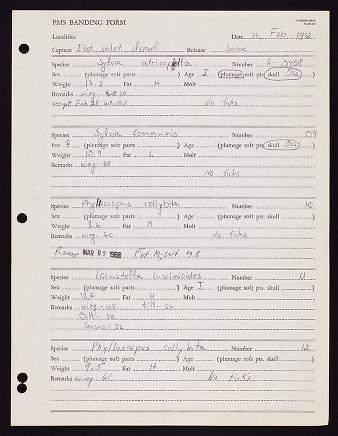 PMS BANDING FORM
Localities Date Feb. 1968
Capture Elat, Israel Release Same
Species Sylvia atricapilla Number A-3408
Sex (plumage soft parts ) Age I (plumage soft pts. skull Oss )
Weight 18.2 Fat H Molt
Remarks wing-
recapt Feb 28, No ticks
Species Sylvia communis Number 09
Sex ♀ (plumage soft parts ) Age (plumage soft pts. skull Oss )
Weight 13.9 Fat L Molt
Remarks wing-68
No ticks
Species Phylloscopus collybita Number 10
Sex (plumage soft parts ) Age (plumage soft pts. skull )
Weight 8.6 Fat M Molt
Remarks wing-60 No ticks
Recap MAR 03 1968 Fat-M, wt. 7.8
Species Locustella luscinioides Number 11
Sex (plumage soft parts ) Age I (plumage soft pts. skull )
Weight Fat M Molt
Remarks wing-65 tail-56
Bill-16
Tarsus-22
Species Phylloscopus collybita Number 12
Sex (plumage soft parts ) Age (plumage soft pts. skull )
Weight 9.5 Fat H Molt
Remarks wing 61 No ticks